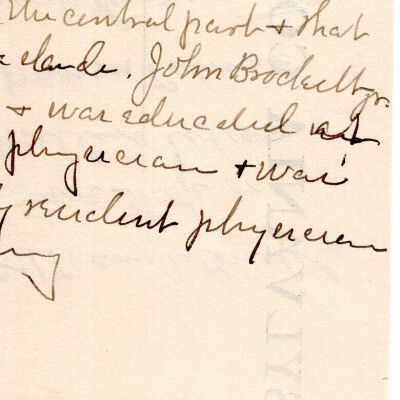 the central part + that
elande. John Brockett jr.
+ was educated
physician + was
resident physician